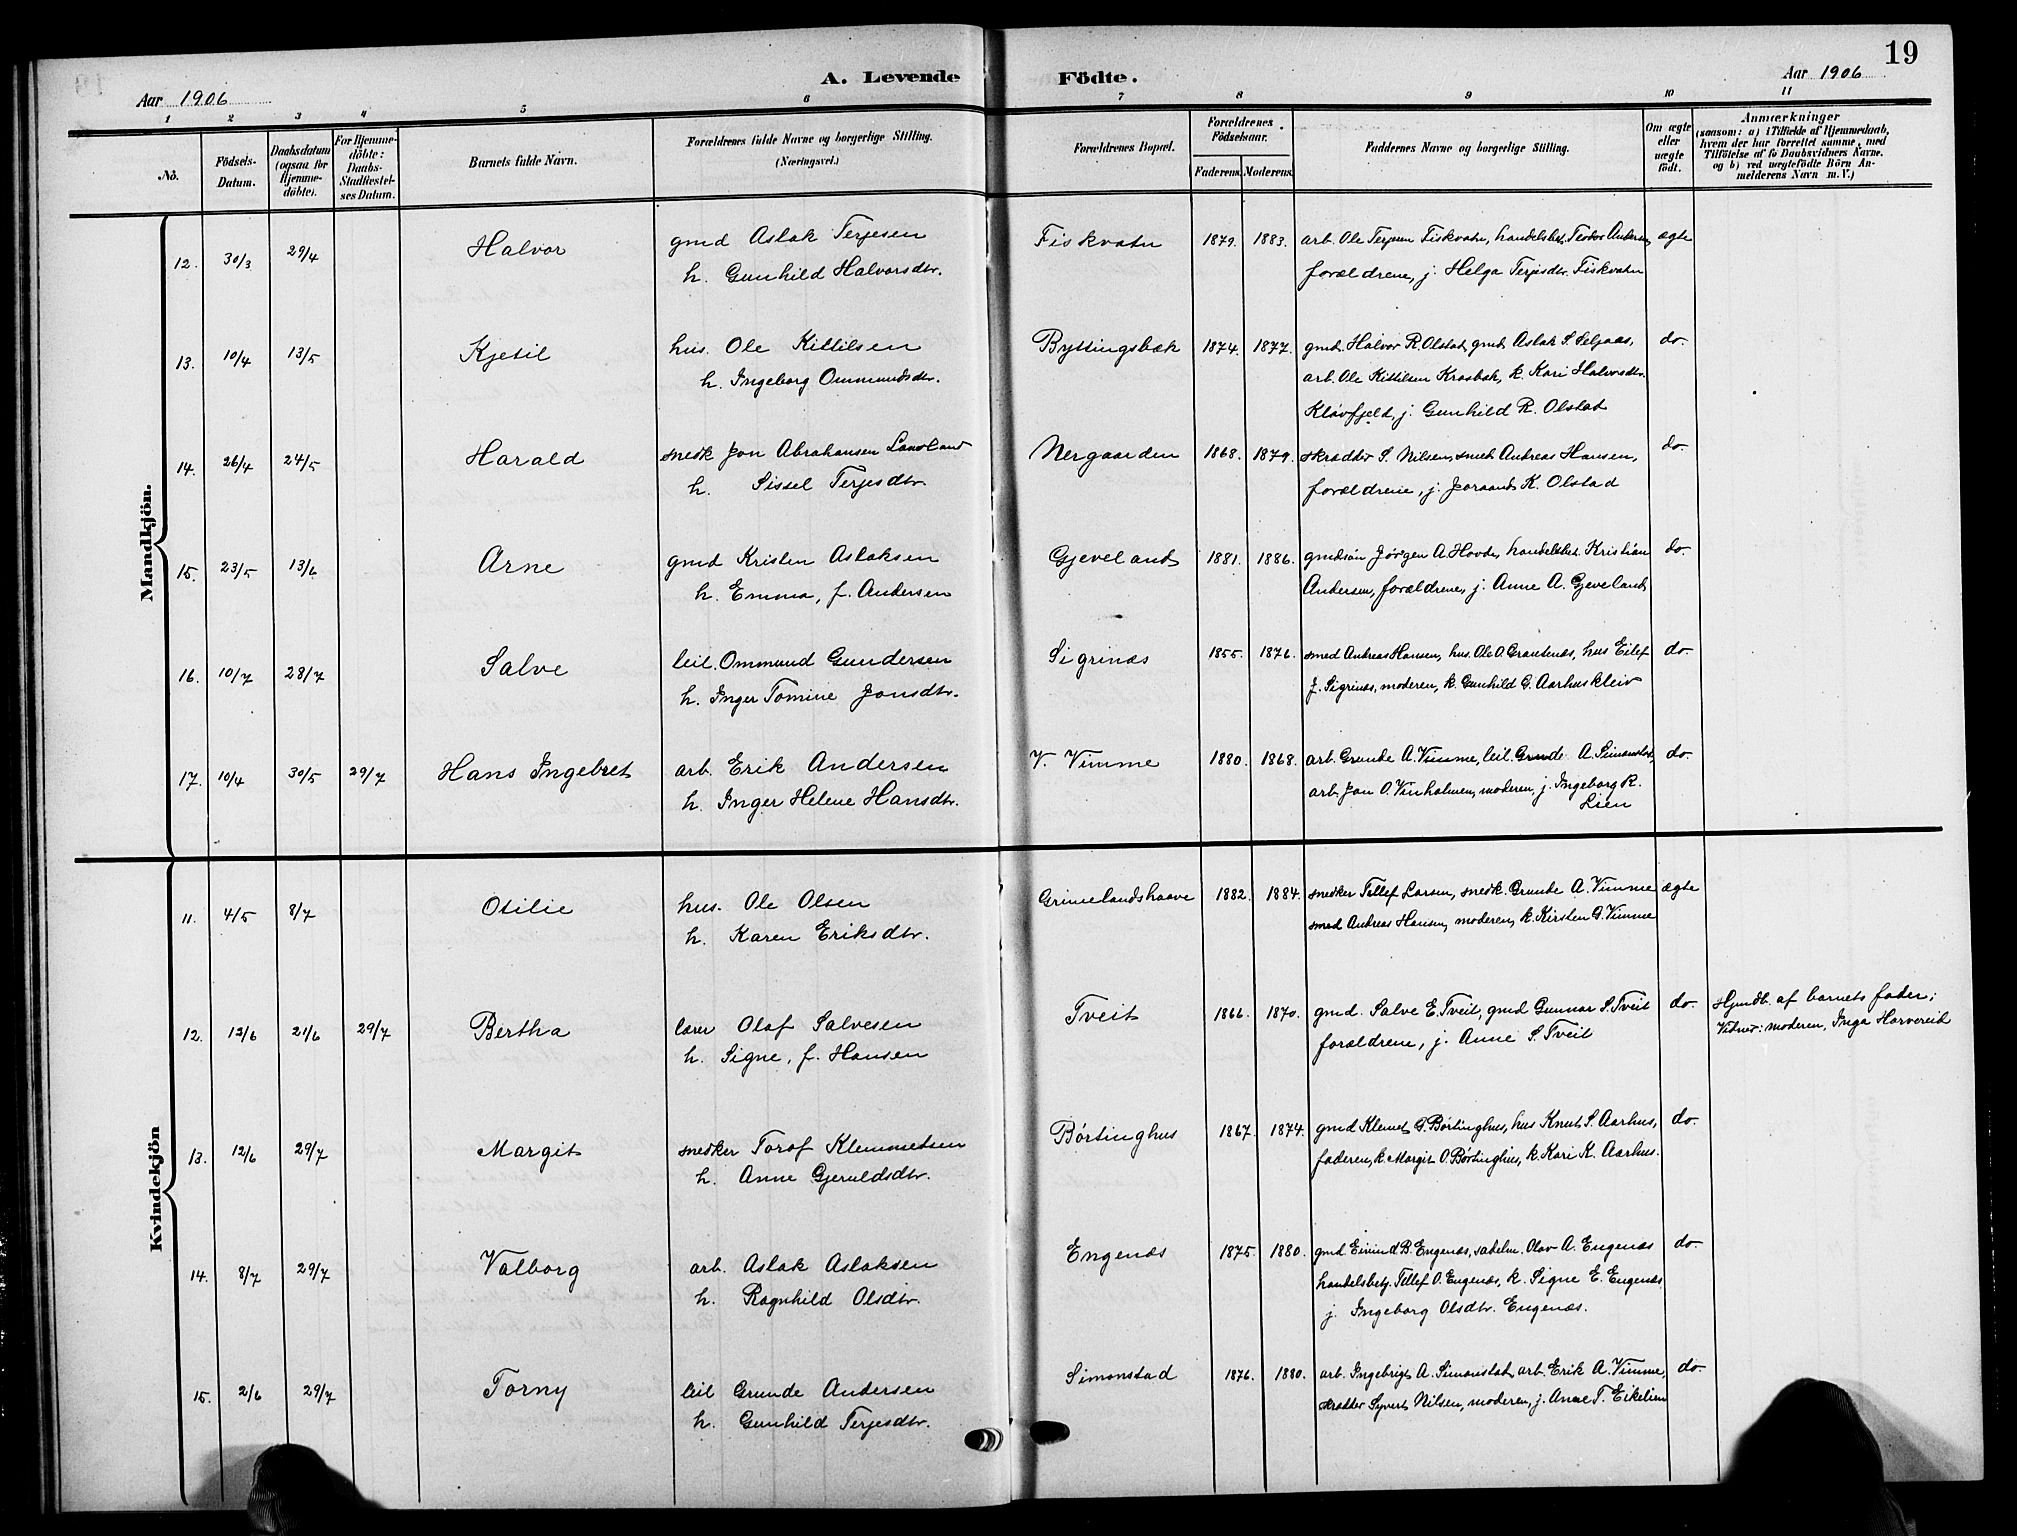 19
A. Levende Födte.
Aar 1906
Aar 1906
1 2 3 4 5 6 7 8 9 10 11
No.
Födsels-Datum.
Daabsdatum (ogsaa for Hjemmedöbte).
For Hjemmedöbte: Daabs-Stadfæstelses Datum.
Barnets fulde Navn.
Forældrenes fulde Navne og borgerlige Stilling. (Næringsvei.)
Forældrenes Bopæl.
Forældrenes Födselsaar.
Faderens. Moderens.
Faddernes Navne og borgerlige Stilling.
Om ægte eller uægte födt.
Anmærkninger
(saasom: a) i Tilfælde af Hjemmedaab, hvem der har forrettet samme, med Tilföielse af to Daabsvidners Navne. og b) ved uægtefödte Börn Anmelderens Navn m. V.)
Mandkjön.
12. 30/3 29/4 Halvor gmd Aslak Terjesen Fiskvatn 1879. 1883. arb. Ole Terjesen Fiskvatn, handelsbet. Andersen, ægte
h. Gunhild Halvorsdtr. forældrene, j. Helga Terjesdtr. Fiskvatn
13. 10/4 13/5 Kjetil hus. Ole Kittilsen Byttingsbæk 1874. 1877. gmd. Halvor R. Olstad, gmd. Aslak S. Seljaas, do.
h. Ingeborg Ommundsdtr. arb. Ole Kittilsen Krosbæk, k. Kari Halvorsdtr.
Kløvfjeld, j. Gunhild R. Olstad
14. 26/4 24/5 Harald snedk Jon Abrahamsen Landland Nergaarden 1868. 1879. skrædder S. Nilsen, smed Andreas Hansen, do.
h. Sissel Terjesdtr. forældrene, j. Joraand K. Olstad
15. 23/5 13/6 Arne gmd Kristen Aslaksen Gjeveland 1881. 1886. gmdsøn Jørgen A. Hovde, handelsbet. Kristian do.
h. Emma, f. Andersen Andersen, forældrene, j. Anne A. Gjeveland
16. 10/7 28/7 Salve leil. Ommund Gundersen Sigrinæs 1855. 1876. smed Andreas Hansen, hus. Ole O. Groubenæs, hus Eilef do.
h. Inger Tomine Jonsdtr. J. Sigrinæs, moderen, k. Gunhild G. Aarhuskleiv
17. 10/4 30/5 29/7 Hans Ingebret arb. Erik Andersen V. Vimme 1880. 1868. arb. Grunde A. Vimme, leil. Grunde A. Simonstad, do.
h. Inger Helene Hansdtr. arb. Jon O. Vinholmen, moderen, j. Ingeborg R.
Lien
Kvindekjön
11. 4/5 8/7 Otilie hus. Ole Olsen Grimelandshaave 1882. 1884. snedker Tellef Larsen, snedk. Grunde A. Vimme ægte
h. Karen Eriksdtr. smed Andreas Hansen, moderen, k. Kirsten G. Vimme
12. 12/6 21/6 29/7 Bertha lærer Olaf Salvesen Tveit 1866. 1870. gmd. Salve E. Tveit, gmd Gunnar S. Tveit do. Hjmdb. af barnets fader;
h. Signe, f. Hansen forældrene, j. Anne S. Tveit Vidner: moderen, Inga Harvereid
13. 12/6 29/7 Margit snedker Torof Klemmetsen Børtinghus 1867. 1874. gmd Klemet G. Børtinghus, hus Knut S. Aarhus, do.
h. Anne Gjeruldsdtr. faderen, k. Margit O. Børtinghus, k. Kari K. Aarhus.
14. 8/7 29/7 Valborg arb. Aslak Aslaksen Engenæs 1875. 1880. gmd Eivind B. Engenæs, sadelm. Olav A. Engenæs do.
h. Ragnhild Olsdtr. handelsbetj. Tellef O. Engenæs, k. Signe E. Engenæs
j. Ingeborg Olsdtr. Engenæs.
15. 2/6 29/7 Torny leil Grunde Andersen Simonstad 1876. 1880. arb. Ingebrigt A. Simonstad, arb. Erik A. Vimme, do.
h. Gunhild Terjesdtr. skrædder Syvert Nilsen, moderen, j. Anne T. Eikelien